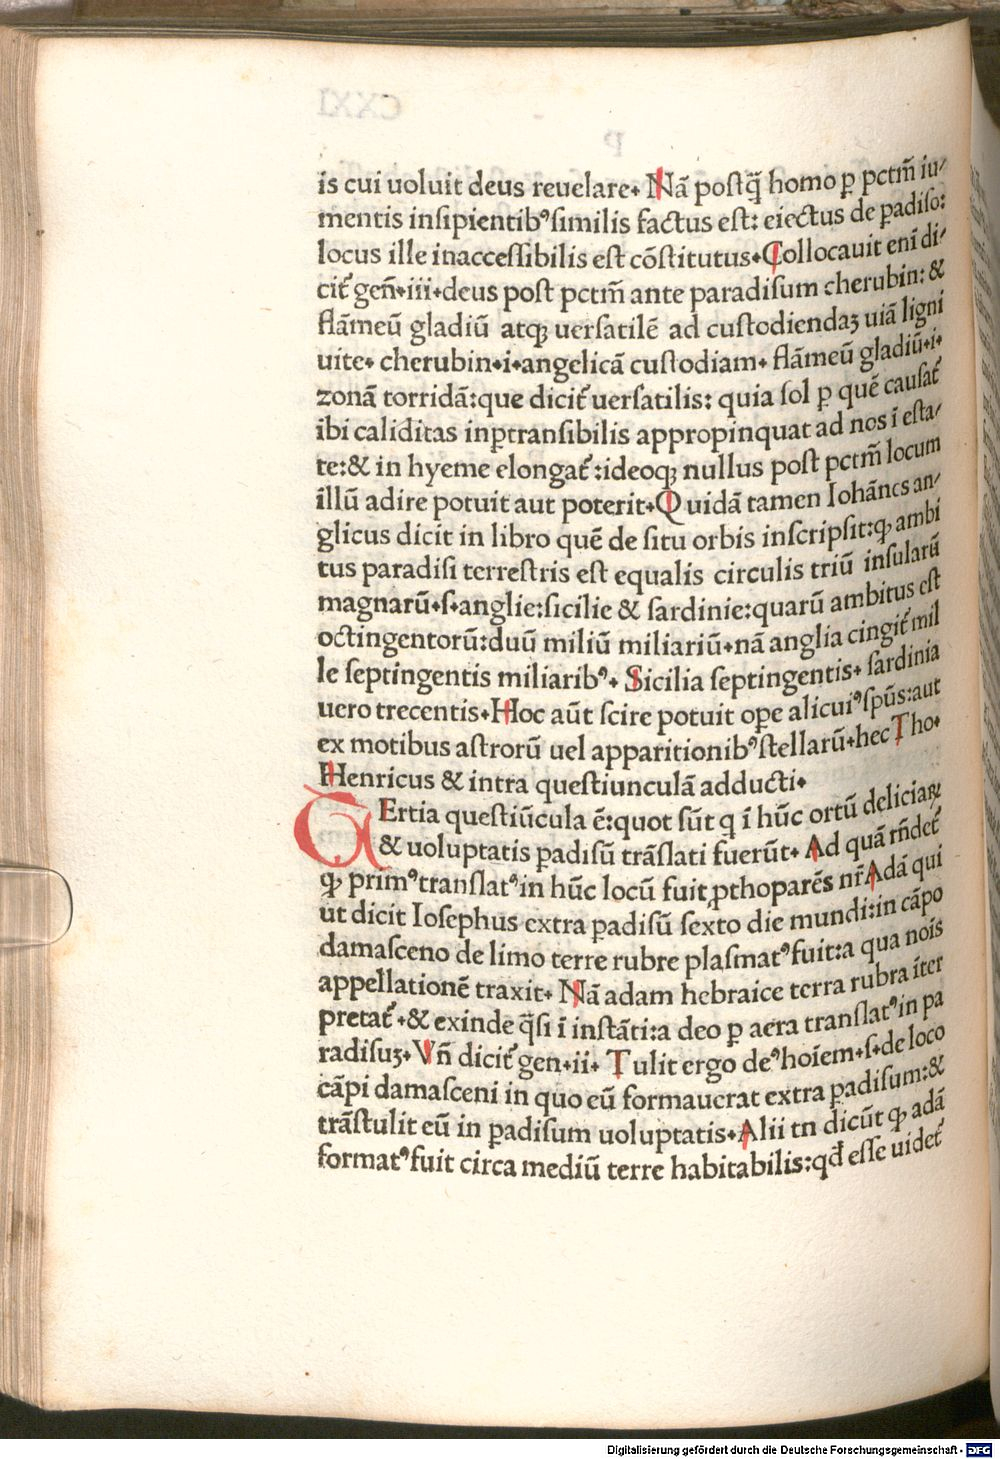 is cui uoluit deus reuelare. Nā postq̄ homo ꝑ pctm̄ iu⸗
mentis insipientibꝰ similis factus est: eiectus de ꝑadiso:
locus ille inaccessibilis est cōstitutus. Collocauit eni̅ di⸗
cit᷑ gen̄.iii.deus post pctm̄ ante paradisum cherubin: &
flāmeū gladiū atqꝫ uersatilē ad custodiendaꝫ uiā ligni
uite. cherubin.i.angelicā custodiam. flāmeū gladiū.i.
zonā torridā:que dicit᷑ uersatilis: quia sol ꝑ quē causat᷑
ibi caliditas inꝑtransibilis appropinquat ad nos ī esta⸗
te:& in hyeme elongat᷑:ideoqꝫ nullus post pctm̄ locum
illū adire potuit aut poterit. Quidā tamen Iohānes an⸗
glicus dicit in libro quē de situ orbis inscripsit:ꝙ ambi
tus paradisi terrestris est equalis circulis triū insularū
magnarū.s.anglie:sicilie & sardinie:quarū ambitus est
octingentorū:duū miliū miliariū.nā anglia cingit᷑ mil
le septingentis miliaribꝰ. Sicilia septingentis. sardinia
uero trecentis. Hoc aūt scire potuit ope alicuiꝰ spūs:aut
ex motibus astrorū uel apparitionibꝰ stellarū.hec Tho.
Henricus & intra questiunculā adducti.
TErtia questiūcula ē:quot sūt q ī hūc ortū deliciaꝝ
& uoluptatis ꝑadisū trāslati fuerūt. Ad quā rn̄det᷑
ꝙ primꝰ translatꝰ in hūc locū fuit ꝓthoparēs nr̄ Adā qui
ut dicit Iosephus extra ꝑadisū sexto die mundi:in cāpo
damasceno de limo terre rubre plasmatꝰ fuit:a qua nois
appellationē traxit. Nā adam hebraice terra rubra īter
pretat᷑.& exinde q̄si ī instāti:a deo ꝑ aera translatꝰ in pa
radisuꝫ. Vn̄ dicit᷑ gen.ii. Tulit ergo deꝰ hoīem.s.de loco
cāpi damasceni in quo eū formauerat extra ꝑadisum:&
trāstulit eū in ꝑadisum uoluptatis. Alii tn dicūt ꝙ adā
formatꝰ fuit circa mediū terre habitabilis:qđ esse uidet᷑
Digitalisierung gefördert durch die Deutsche Forschungsgemeinschaft - DFG